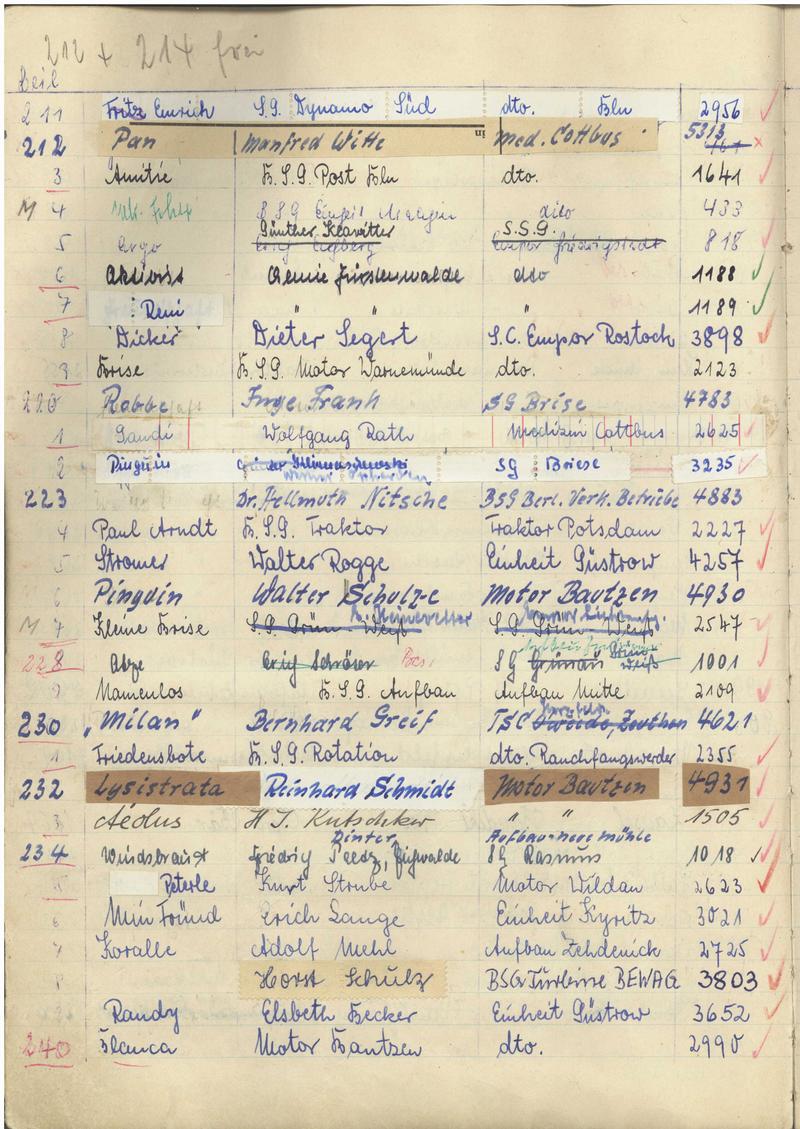 212 + 214 frei
211 Fritz Emrich S.G. Dynamo Süd dto. Bln 2956
212 Pan Manfred Witte med. Cottbus 5313
3 Amitié B.S.G. Post Bln dto. 1641
M 4 B S G Empor dito 433
5 Argo Günther Klavitter S.S.G. 818
6 Aktivist Chemie Fürstenwalde dto 1188
7 Reni " " 1189
8 "Dicker" Dieter Segert S.C. Empor Rostock 3898
9 Brise B.S.G. Motor Warnemünde dto. 2123
220 Robbe Inge Frank SG Brise 4783
1 Gandi Wolfgang Rath Medizin Cottbus 2625
2 Pinguin SG Briese 3235
223 Dr. Hellmuth Nitsche BSG Berl. Verk. Betriebe 4883
4 Paul Arndt B.S.G. Traktor Traktor Potsdam 2227
5 Stromer Walter Rogge Einheit Güstrow 4257
6 Pinguin Walter Schulze Motor Bautzen 4930
M 7 Kleine Brise S.G. Grün-Weiß S.G. Grün-Weiß 2547
228 Erich Schröser SG Grünau 1001
9 Namenlos B.S.G. Aufbau Aufbau Mitte 2109
230 "Milan" Bernhard Greif TSC Zeuthen 4621
1 Friedensbote B.S.G. Rotation dto. Rauchfangswerder 2355
232 Lysistrata Reinhard Schmidt Motor Bautzen 4931
3 Aeolus H J. Kutschker " " 1505
234 Windsbraut SG Rasmus 1018
5 Peterle Kurt Strube Motor Wildau 2623
6 Mein Fründ Erich Lange Einheit Kyritz 3021
7 Koralle Adolf Mehl Aufbau Zehdenick 2725
8 Horst Schulz BSG Turbine BEWAG 3803
9 Randy Elsbeth Becker Einheit Güstrow 3652
240 Blanca Motor Bautzen dto. 2990